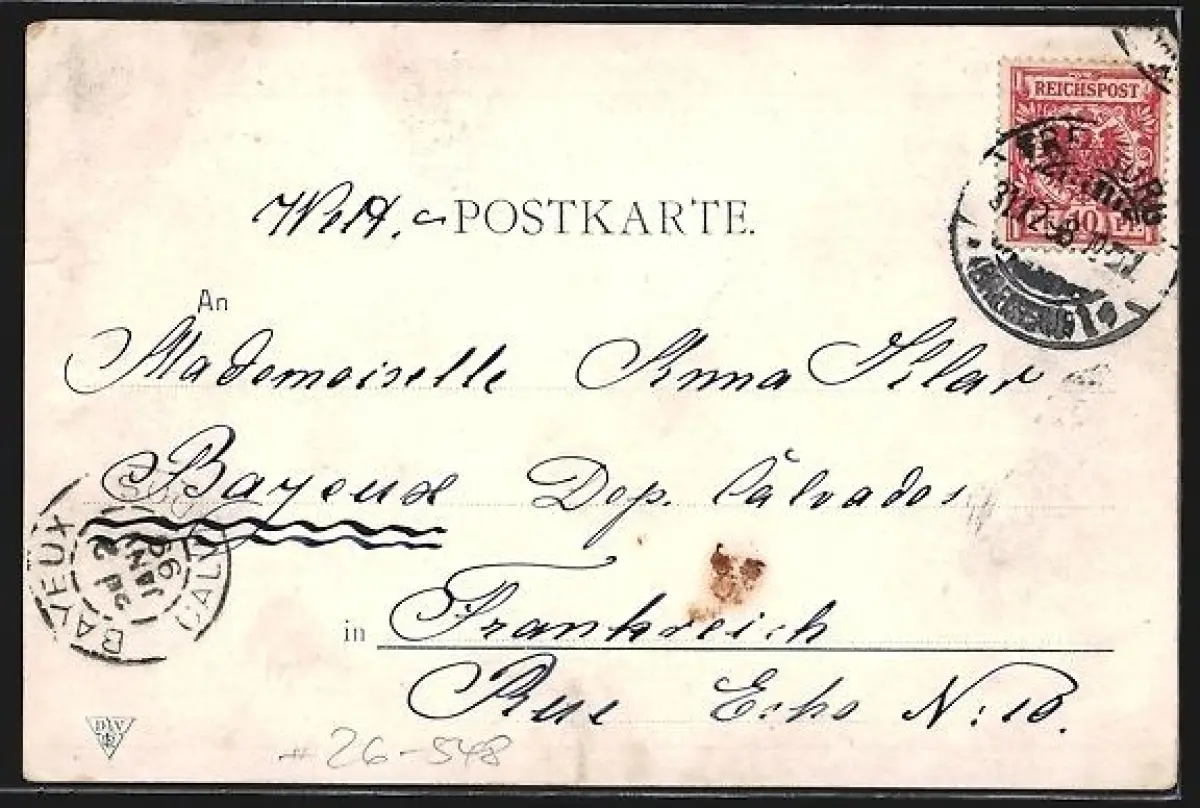 REICHSPOST
10 PF.
31.12.98
Welt-POSTKARTE.
An
Mademoiselle Anna Klar
Bayeux Dep. Calvados
in Frankreich
Rue Echo N:10.
BAYEUX
2
JANV
99
CALV
DAV
#26-548